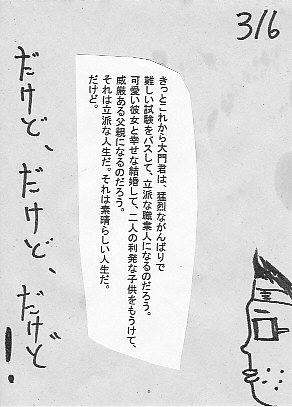 316
きっとこれから大門君は、猛烈ながんばりで
難しい試験をパスして、立派な職業人になるのだろう。
可愛い彼女と幸せな結婚して、二人の利発な子供をもうけて、
威厳ある父親になるのだろう。
それは立派な人生だ。それは素晴らしい人生だ。
だけど。
だけど、だけど、だけど!